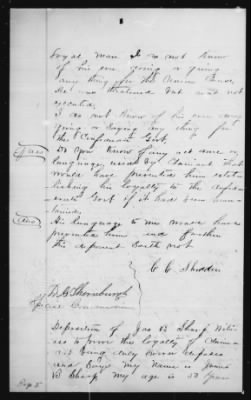 loyal man I do not know
of his ever going or giving
any thing for the Union Cause
He was threatened but was not
executed.
I do not know of his ever
going or saying any thing for
the Confederate Govt.
Ques Do you know of any act done or
language used by Claimant that
would have prevented him estab
lishing his loyalty to the Confed
erate Govt if it had been main
tained.
Ans No language to me would have
prevented him and further
the deponent saith not
C C Shedden
D. G. Thornburgh
Special Commissioner
Deposition of Jas B Sharp Witn
ess to prove the loyalty of Claima
nt being duly sworn deposes
and says My name is James
B Sharp My age is 50 years
Dep 5